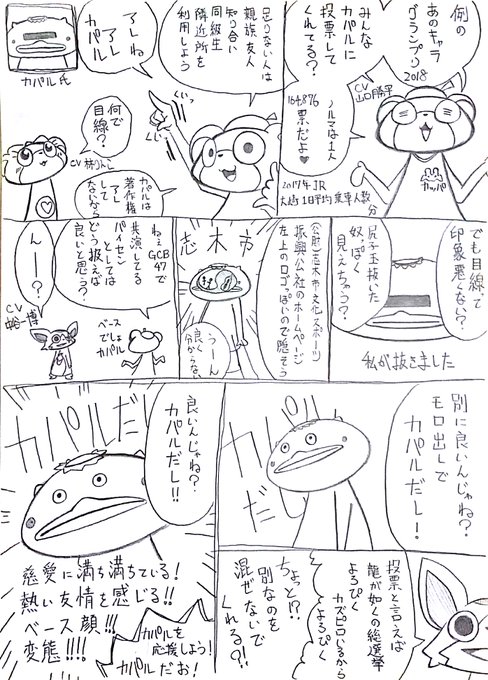 例の
あのキャラ
グランプリ
2018
みんな
カパルに
投票して
くれてる？
CV
山口勝平
ノルマは1人
164,876
票だよ♥
カッパ
2017年JR
大崎1日平均乗車人数
分
足りない人は
親族友人
知り合い
同級生
隣近所を
利用しよう
ぐいっ
ぐいっ
アレね
アレ
カパル
カパル氏
何で
目線？
カパルは
著作権
アレして
ないなら
でも目線って
印象悪くない？
尻子玉抜いた
奴っぽく
見えちゃう？
私が抜きました
(公財)志木市文化スポーツ
振興公社のホームページ
左上のロゴっぽいので隠そう
志木市
うーん
良く
分からない
ねぇGCB
47で
共演してる
パイセン
としては
どう扱えば
良いと思う？
ベース
でしょ
カパル
んー？
CV
別に良いんじゃね？
モロ出しで
カパルだし！
投票と言えば
龍が如くの総選挙
よろぴく
カズヒロいるから
よろぴく
ちょっと!?
別なのを
混ぜないで
くれる?!
良いんじゃね？
カパルだし!!
カパルだし
慈愛に満ち満ちている！
熱い友情を感じる!!
ベース顔!!!
変態!!!!
カパルを
応援しよう！
カパルだお！